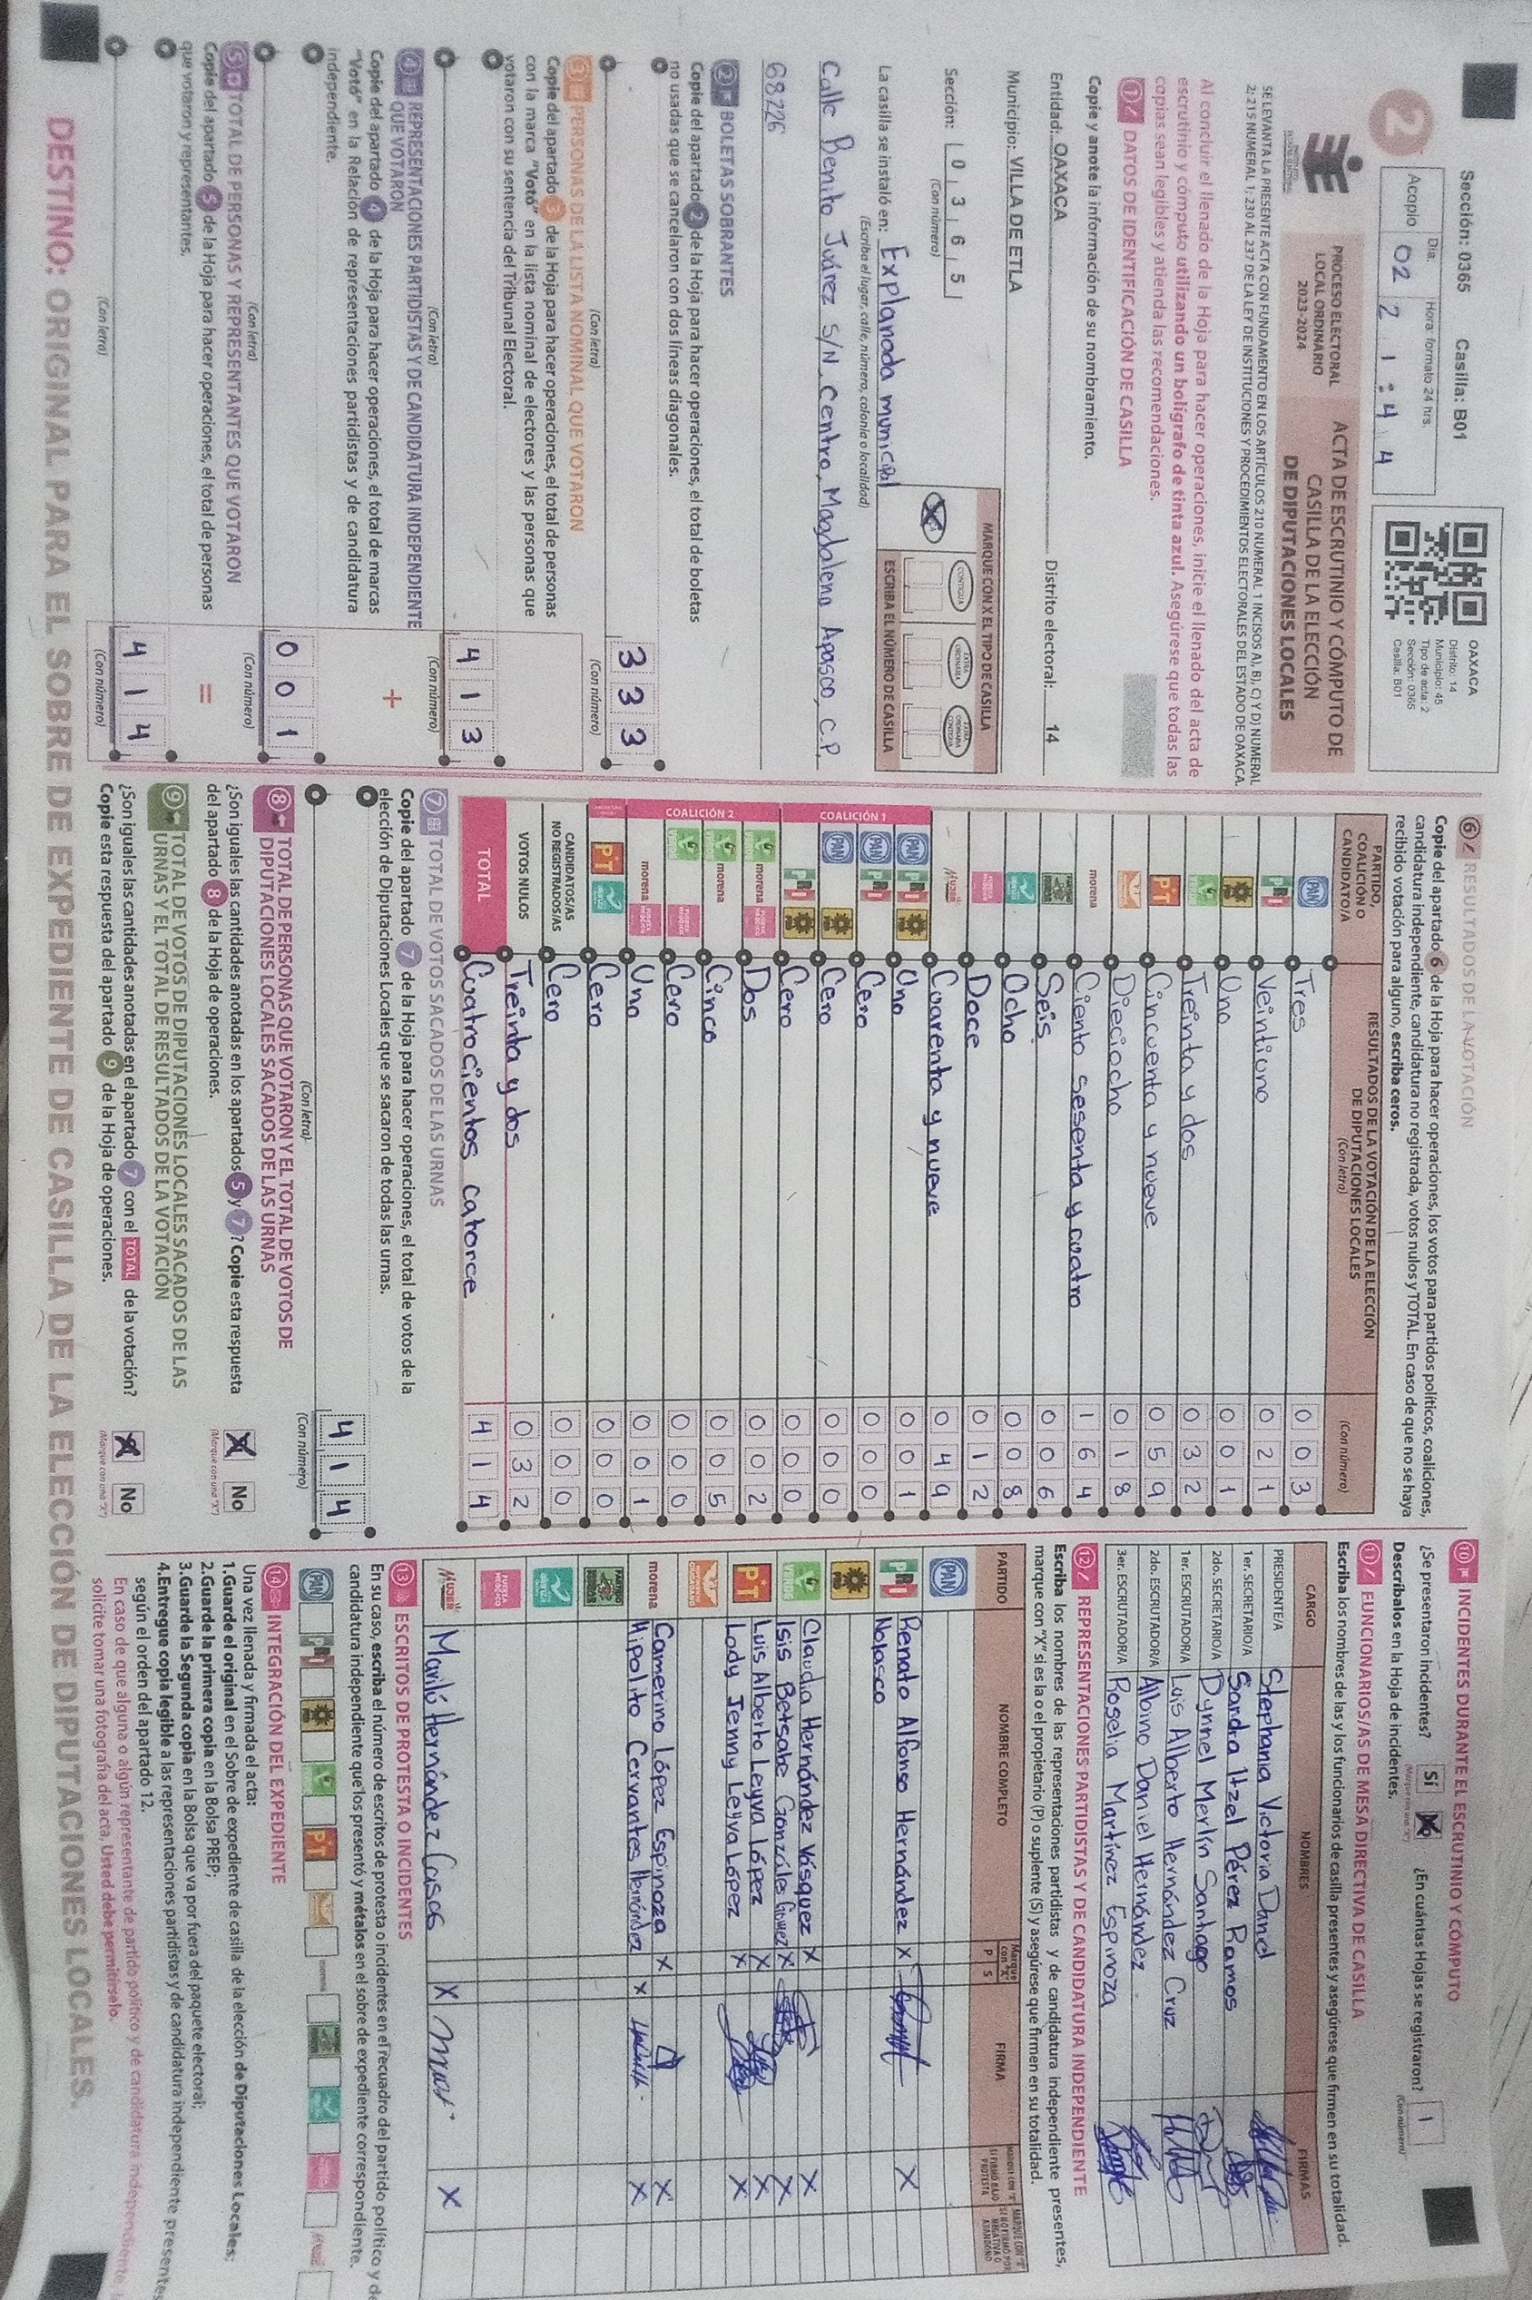 Sección: 0365 Casilla: B01
2
Acopio
Día:
02
Hora: formato 24 hrs.
21:44
OAXACA
Distrito: 14
Municipio: 45
Tipo de acta: 2
Sección: 0365
Casilla: B01
PROCESO ELECTORAL
LOCAL ORDINARIO
2023-2024
ACTA DE ESCRUTINIO Y CÓMPUTO DE
CASILLA DE LA ELECCIÓN
DE DIPUTACIONES LOCALES
SE LEVANTA LA PRESENTE ACTA CON FUNDAMENTO EN LOS ARTÍCULOS 210 NUMERAL 1 INCISOS A), B), C) Y D) NUMERAL
2; 215 NUMERAL 1; 230 AL 237 DE LA LEY DE INSTITUCIONES Y PROCEDIMIENTOS ELECTORALES DEL ESTADO DE OAXACA.
Al concluir el llenado de la Hoja para hacer operaciones, inicie el llenado del acta de
escrutinio y cómputo utilizando un bolígrafo de tinta azul. Asegúrese que todas las
copias sean legibles y atienda las recomendaciones.
1 DATOS DE IDENTIFICACIÓN DE CASILLA
Copie y anote la información de su nombramiento.
Entidad: OAXACA Distrito electoral: 14
Municipio: VILLA DE ETLA
Sección: 0 3 6 5
(Con número)
MARQUE CON X EL TIPO DE CASILLA
CONTIGUA
EXTRA
ORDINARIA
EXTRA
ORDINARIA
CONTIGUA
ESCRIBA EL NÚMERO DE CASILLA
La casilla se instaló en: Explanada municipal
(Escriba el lugar, calle, número, colonia o localidad)
Calle Benito Juárez S/N. Centro, Magdalena Apasco, C.P.
68226
2 BOLETAS SOBRANTES
Copie del apartado 2 de la Hoja para hacer operaciones, el total de boletas
no usadas que se cancelaron con dos líneas diagonales.
333
(Con letra) (Con número)
3 PERSONAS DE LA LISTA NOMINAL QUE VOTARON
Copie del apartado 3 de la Hoja para hacer operaciones, el total de personas
con la marca "Votó" en la lista nominal de electores y las personas que
votaron con su sentencia del Tribunal Electoral.
413
(Con letra) (Con número)
4 REPRESENTACIONES PARTIDISTAS Y DE CANDIDATURA INDEPENDIENTE
QUE VOTARON
+
Copie del apartado 4 de la Hoja para hacer operaciones, el total de marcas
"Votó" en la Relación de representaciones partidistas y de candidatura
independiente.
001
(Con letra) (Con número)
5 TOTAL DE PERSONAS Y REPRESENTANTES QUE VOTARON
=
Copie del apartado 5 de la Hoja para hacer operaciones, el total de personas
que votaron y representantes.
414
(Con letra) (Con número)
6 RESULTADOS DE LA VOTACIÓN
Copie del apartado 6 de la Hoja para hacer operaciones, los votos para partidos políticos, coaliciones,
candidatura independiente, candidatura no registrada, votos nulos y TOTAL. En caso de que no se haya
recibido votación para alguno, escriba ceros.
PARTIDO,
COALICIÓN O
CANDIDATO/A
RESULTADOS DE LA VOTACIÓN DE LA ELECCIÓN
DE DIPUTACIONES LOCALES
(Con letra) (Con número)
PAN Tres 003
PRI Veintiuno 021
PRD Uno 001
VERDE Treinta y dos 032
PT Cincuenta y nueve 059
Dieciocho 018
morena Ciento sesenta y cuatro 164
Seis 006
Ocho 008
Doce 012
MUJER Cuarenta y nueve 049
COALICIÓN 1
PAN PRI PRD Uno 001
PAN PRI Cero 000
PAN PRD Cero 000
PRI PRD Cero 000
COALICIÓN 2
VERDE morena FUERZA MÉXICO Dos 002
VERDE morena Cinco 005
VERDE FUERZA MÉXICO Cero 000
morena FUERZA MÉXICO Uno 001
PT Cero 000
CANDIDATOS/AS
NO REGISTRADOS/AS Cero 000
VOTOS NULOS Treinta y dos 032
TOTAL Cuatrocientos catorce 414
7 TOTAL DE VOTOS SACADOS DE LAS URNAS
Copie del apartado 7 de la Hoja para hacer operaciones, el total de votos de la
elección de Diputaciones Locales que se sacaron de todas las urnas.
414
(Con letra) (Con número)
8 TOTAL DE PERSONAS QUE VOTARON Y EL TOTAL DE VOTOS DE
DIPUTACIONES LOCALES SACADOS DE LAS URNAS
¿Son iguales las cantidades anotadas en los apartados 5 y 7? Copie esta respuesta
del apartado 8 de la Hoja de operaciones.
X No
(Marque con una "X")
9 TOTAL DE VOTOS DE DIPUTACIONES LOCALES SACADOS DE LAS
URNAS Y EL TOTAL DE RESULTADOS DE LA VOTACIÓN
¿Son iguales las cantidades anotadas en el apartado 7 con el TOTAL de la votación?
Copie esta respuesta del apartado 9 de la Hoja de operaciones.
X No
(Marque con una "X")
10 INCIDENTES DURANTE EL ESCRUTINIO Y CÓMPUTO
¿Se presentaron incidentes? Sí X ¿En cuántas Hojas se registraron? 1
(Marque con una "X") (Con número)
Descríbalos en la Hoja de incidentes.
11 FUNCIONARIOS/AS DE MESA DIRECTIVA DE CASILLA
Escriba los nombres de las y los funcionarios de casilla presentes y asegúrese que firmen en su totalidad.
CARGO NOMBRES FIRMAS
PRESIDENTE/A Stephania Victoria Daniel
1er. SECRETARIO/A Sandra Itzel Pérez Ramos
2do. SECRETARIO/A Dynnel Merlín Santiago
1er. ESCRUTADOR/A Luis Alberto Hernández Cruz
2do. ESCRUTADOR/A Albino Daniel Hernández
3er. ESCRUTADOR/A Rogelia Martínez Espinoza
12 REPRESENTACIONES PARTIDISTAS Y DE CANDIDATURA INDEPENDIENTE
Escriba los nombres de las representaciones partidistas y de candidatura independiente presentes,
marque con "X" si es la o el propietario (P) o suplente (S) y asegúrese que firmen en su totalidad.
PARTIDO NOMBRE COMPLETO P S FIRMA
PAN
PRI Renato Alfonso Hernández X X
Nolasco
VERDE Claudia Hernández Vásquez X X
Isis Betsabe González Gómez X X
PT Luis Alberto Leyva López X X
Lady Jenny Leyva López X X
morena Camerino López Espinoza X X
Hipolito Cervantes Hernández X X
MUJER Marilú Hernández Casas X X
13 ESCRITOS DE PROTESTA O INCIDENTES
En su caso, escriba el número de escritos de protesta o incidentes en el recuadro del partido político y de
candidatura independiente que los presentó y métalos en el sobre de expediente correspondiente.
PAN PRI PRD VERDE PT
14 INTEGRACIÓN DEL EXPEDIENTE
Una vez llenada y firmada el acta:
1.Guarde el original en el Sobre de expediente de casilla de la elección de Diputaciones Locales;
2.Guarde la primera copia en la Bolsa PREP;
3.Guarde la Segunda copia en la Bolsa que va por fuera del paquete electoral;
4.Entregue copia legible a las representaciones partidistas y de candidatura independiente presentes
según el orden del apartado 12.
En caso de que alguna o algún representante de partido político y de candidatura independiente
solicite tomar una fotografía del acta, Usted debe permitírselo.
DESTINO: ORIGINAL PARA EL SOBRE DE EXPEDIENTE DE CASILLA DE LA ELECCIÓN DE DIPUTACIONES LOCALES.